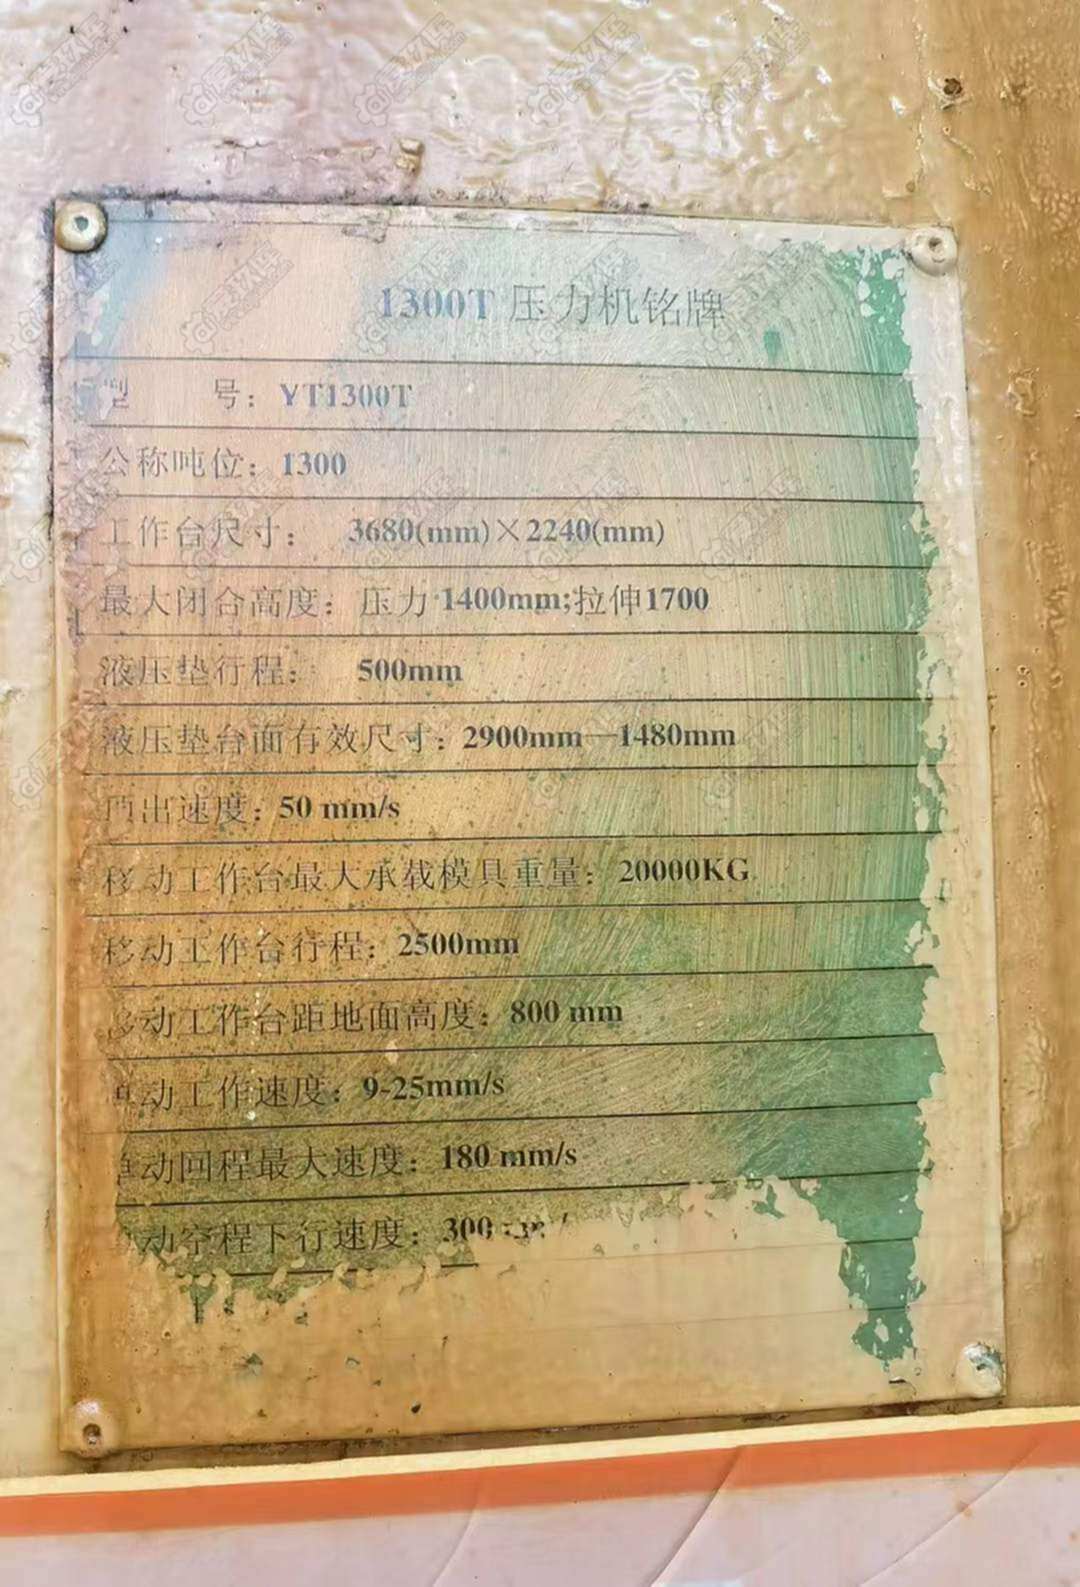 1300T 压力机铭牌
型 号：YT1300T
公称吨位：1300
工作台尺寸： 3680(mm)×2240(mm)
最大闭合高度：压力 1400mm;拉伸1700
液压垫行程： 500mm
液压垫台面有效尺寸：2900mm—1480mm
出速度：50 mm/s
移动工作台最大承载模具重量：20000KG
移动工作台行程：2500mm
移动工作台距地面高度：800 mm
动工作速度：9-25mm/s
动回程最大速度：180 mm/s
动空程下行速度：300